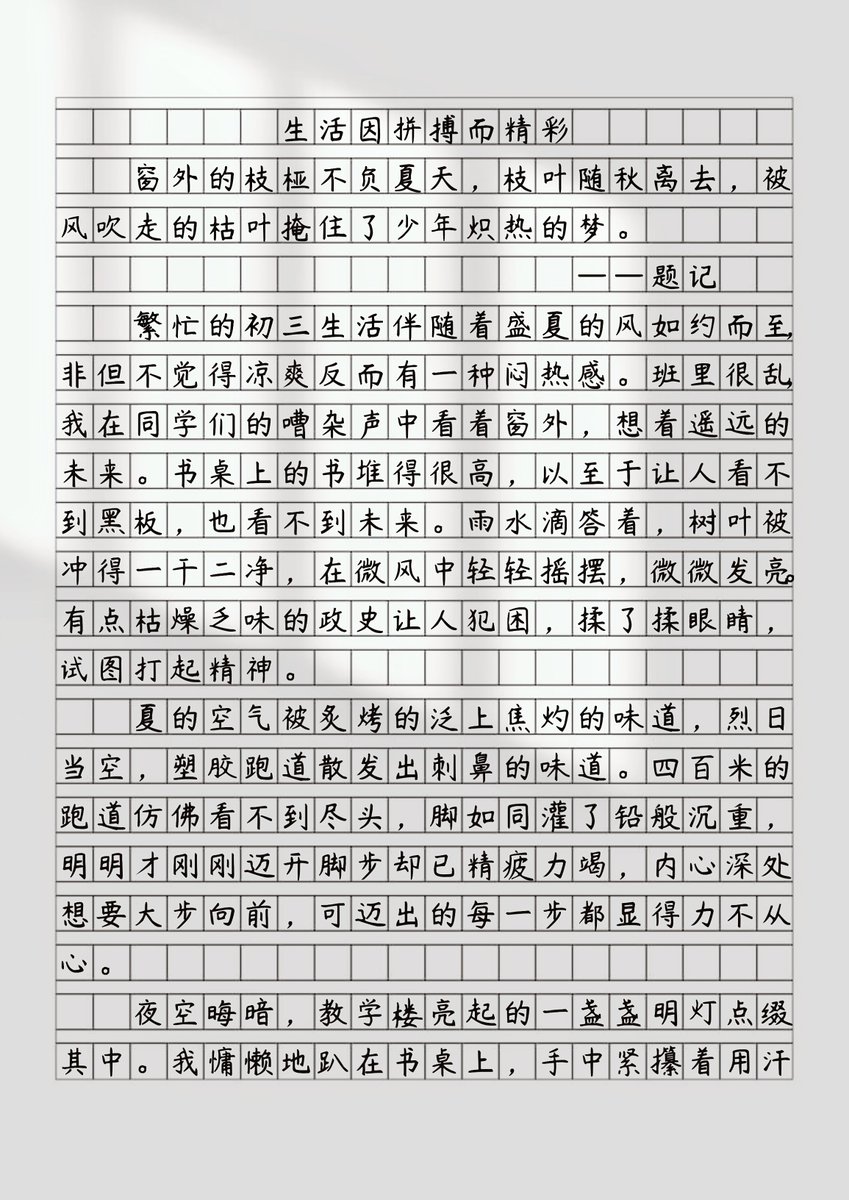 生活因拼搏而精彩
窗外的枝桠不负夏天，枝叶随秋离去，被
风吹走的枯叶掩住了少年炽热的梦。
——题记
繁忙的初三生活伴随着盛夏的风如约而至，
非但不觉得凉爽反而有一种闷热感。班里很乱，
我在同学们的嘈杂声中看着窗外，想着遥远的
未来。书桌上的书堆得很高，以至于让人看不
到黑板，也看不到未来。雨水滴答着，树叶被
冲得一干二净，在微风中轻轻摇摆，微微发亮。
有点枯燥乏味的政史让人犯困，揉了揉眼睛，
试图打起精神。
夏的空气被炙烤的泛上焦灼的味道，烈日
当空，塑胶跑道散发出刺鼻的味道。四百米的
跑道仿佛看不到尽头，脚如同灌了铅般沉重，
明明才刚刚迈开脚步却已精疲力竭，内心深处
想要大步向前，可迈出的每一步都显得力不从
心。
夜空晦暗，教学楼亮起的一盏盏明灯点缀
其中。我慵懒地趴在书桌上，手中紧攥着用汗